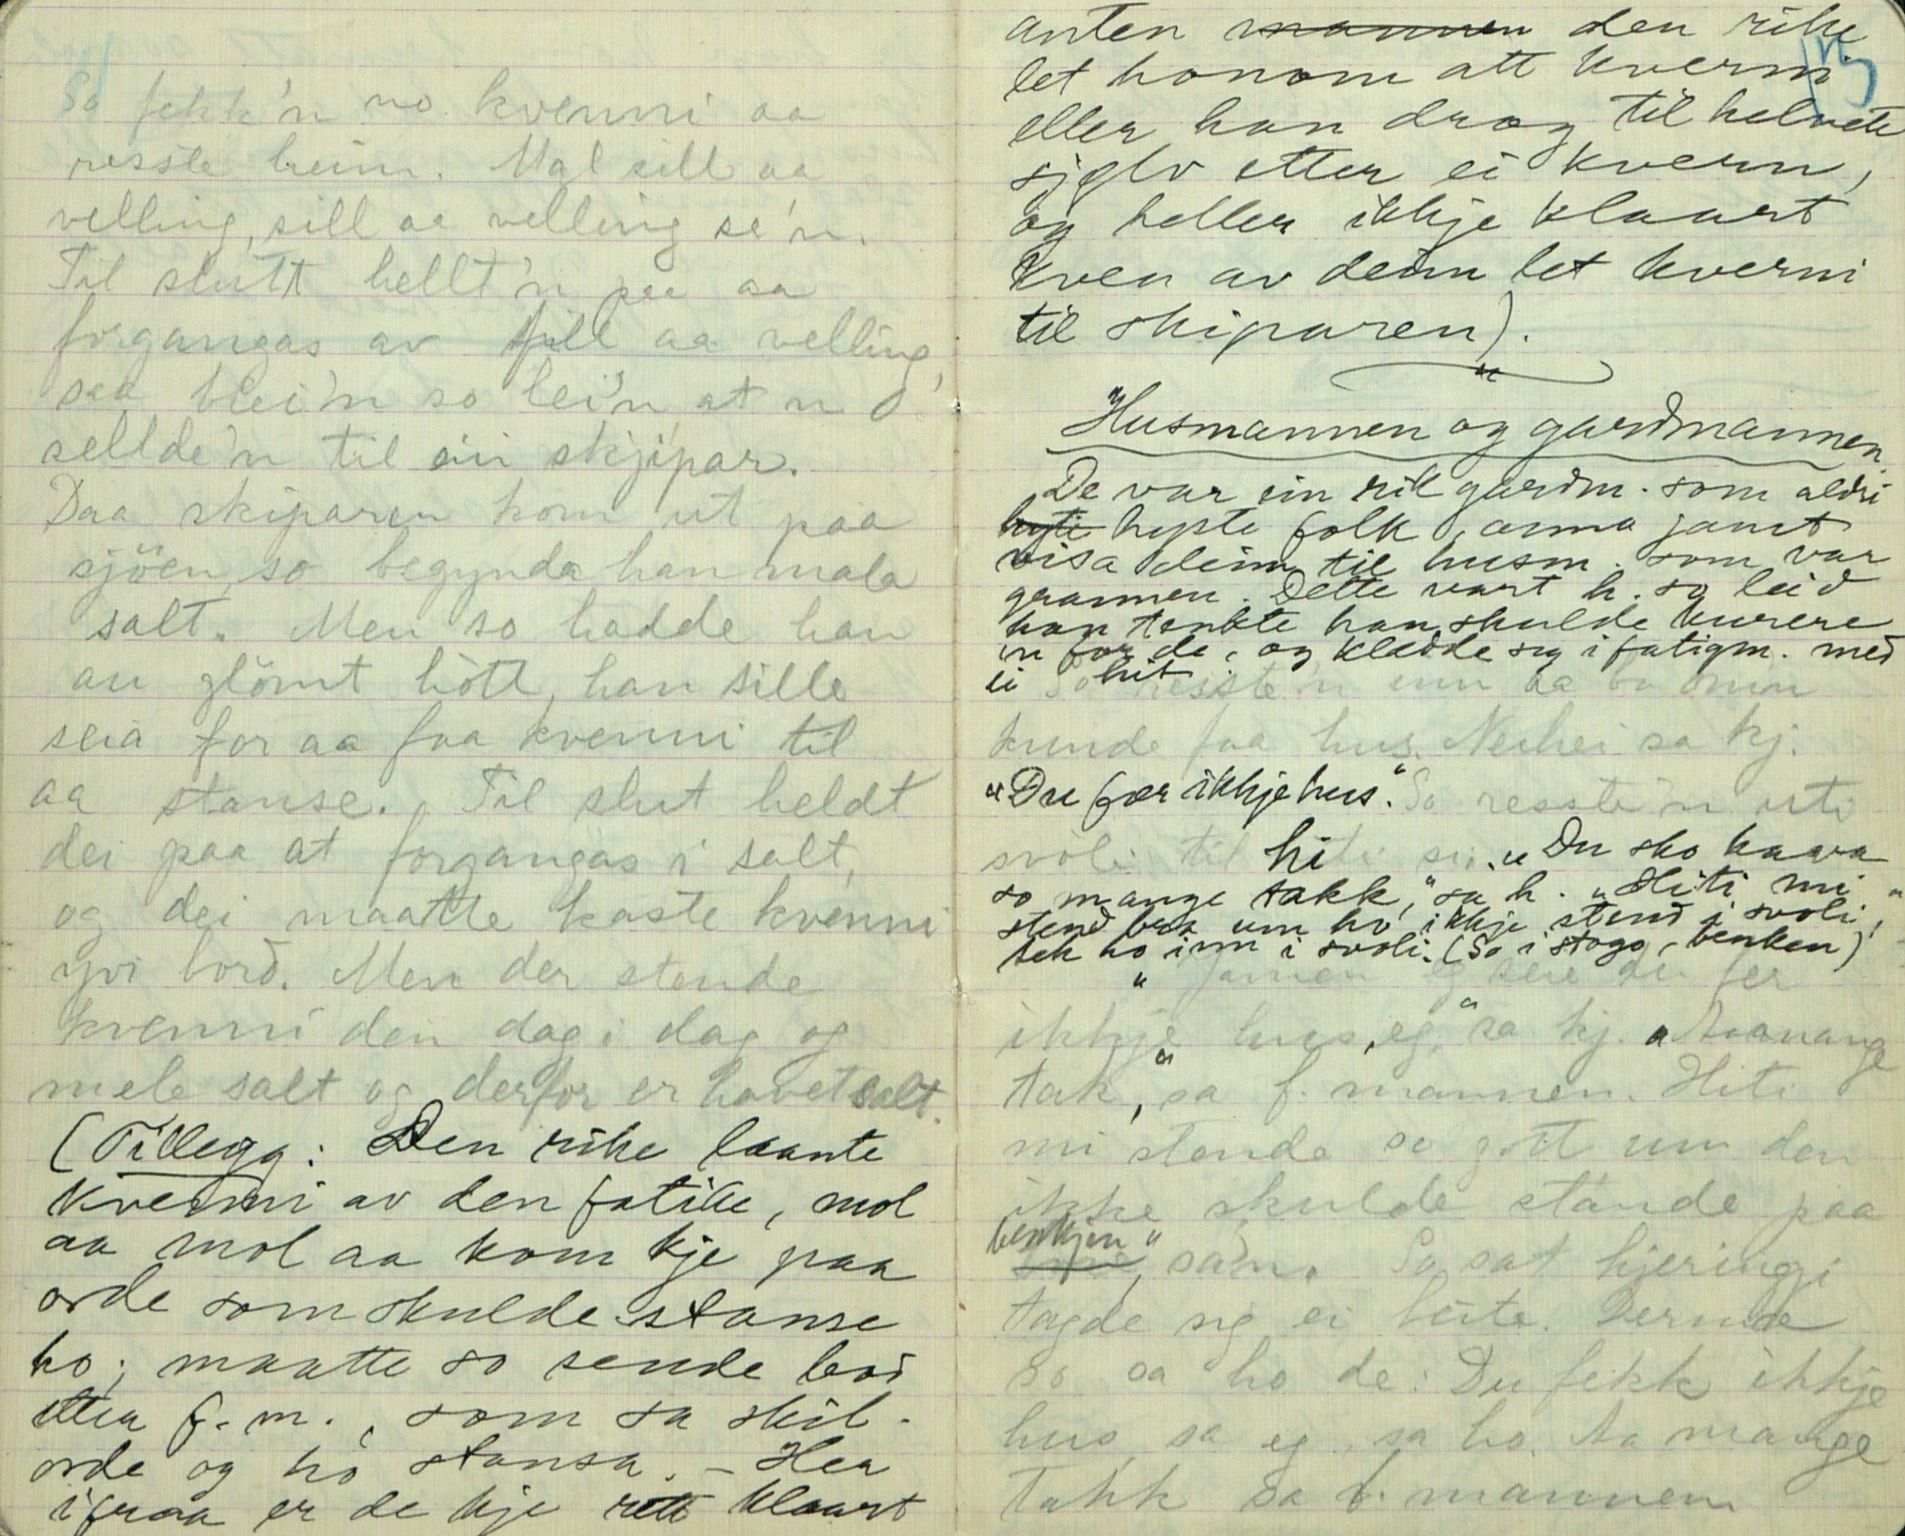 So fekk'n no kvenni aa
resste heim. Mal sill aa
velling, sill aa velling se'n.
Til slutt hellt'n paa aa
forgangas av sill aa velling,
saa blei'n so lei'n at n
sellde'n til ein skjipar.
Daa skiparen kom ut paa
sjöen, so begynda han mala
salt. Men so hadde han
an glömt hött, han sille
seia for aa faa kvenni til
aa stanse. Til slut heldt
dei paa at forgangas i salt,
og dei maatte kaste kvenni
yvi bord. Men der stende
kvenni den dag i dag og
mele salt og derfor er havet salt.
(Tillegg: Den rike laante
kverni av den fatike, mol
aa mol aa kom kje paa
orde som skulde stanse
ho; maatte so sende bod
etter f. m., som sa skil-
orde og ho stansa. – Her
ifraa er de kje rett klaart
anten mannen den rike
let honom att kverni
eller han drog til helvete
sjølv etter ei kvern,
og heller ikkje klaart
kven av deim let kverni
til skiparen).
15
Husmannen og gardmannen.
De var ein rik gardm. som aldri
hyste folk, anna jamt
visa deim til husm. som var
grannen. Dette vart h. so leid
han tenkte han skulde kurere
'n for de, og klædde seg i fatigm. med
ei hit. So resste'n inn aa ba om'n
kunde faa hus. Neihei sa kj.
"Du fær ikkje hus." So resste'n uti
svoli til hiti si. "Du sko haava
so mange takk," sa h. "Hiti mi
stend bra um ho ikkje stend i svoli,"
tek ho inn i svoli. (So i stogo, benken)
" Jamen eg seie du fer
ikkje hus, eg," sa kj. "Aa mange
tak," sa f. mannen. Hiti
mi stende so gott um den
ikke skulde stande paa
benkjen" sa'n. So sat kjeringi
tagde sig ei beite. Dernæ
so sa ho de: Du fekk ikkje
hus, sa eg, sa ho. Aa mange
takk sa f. mannen